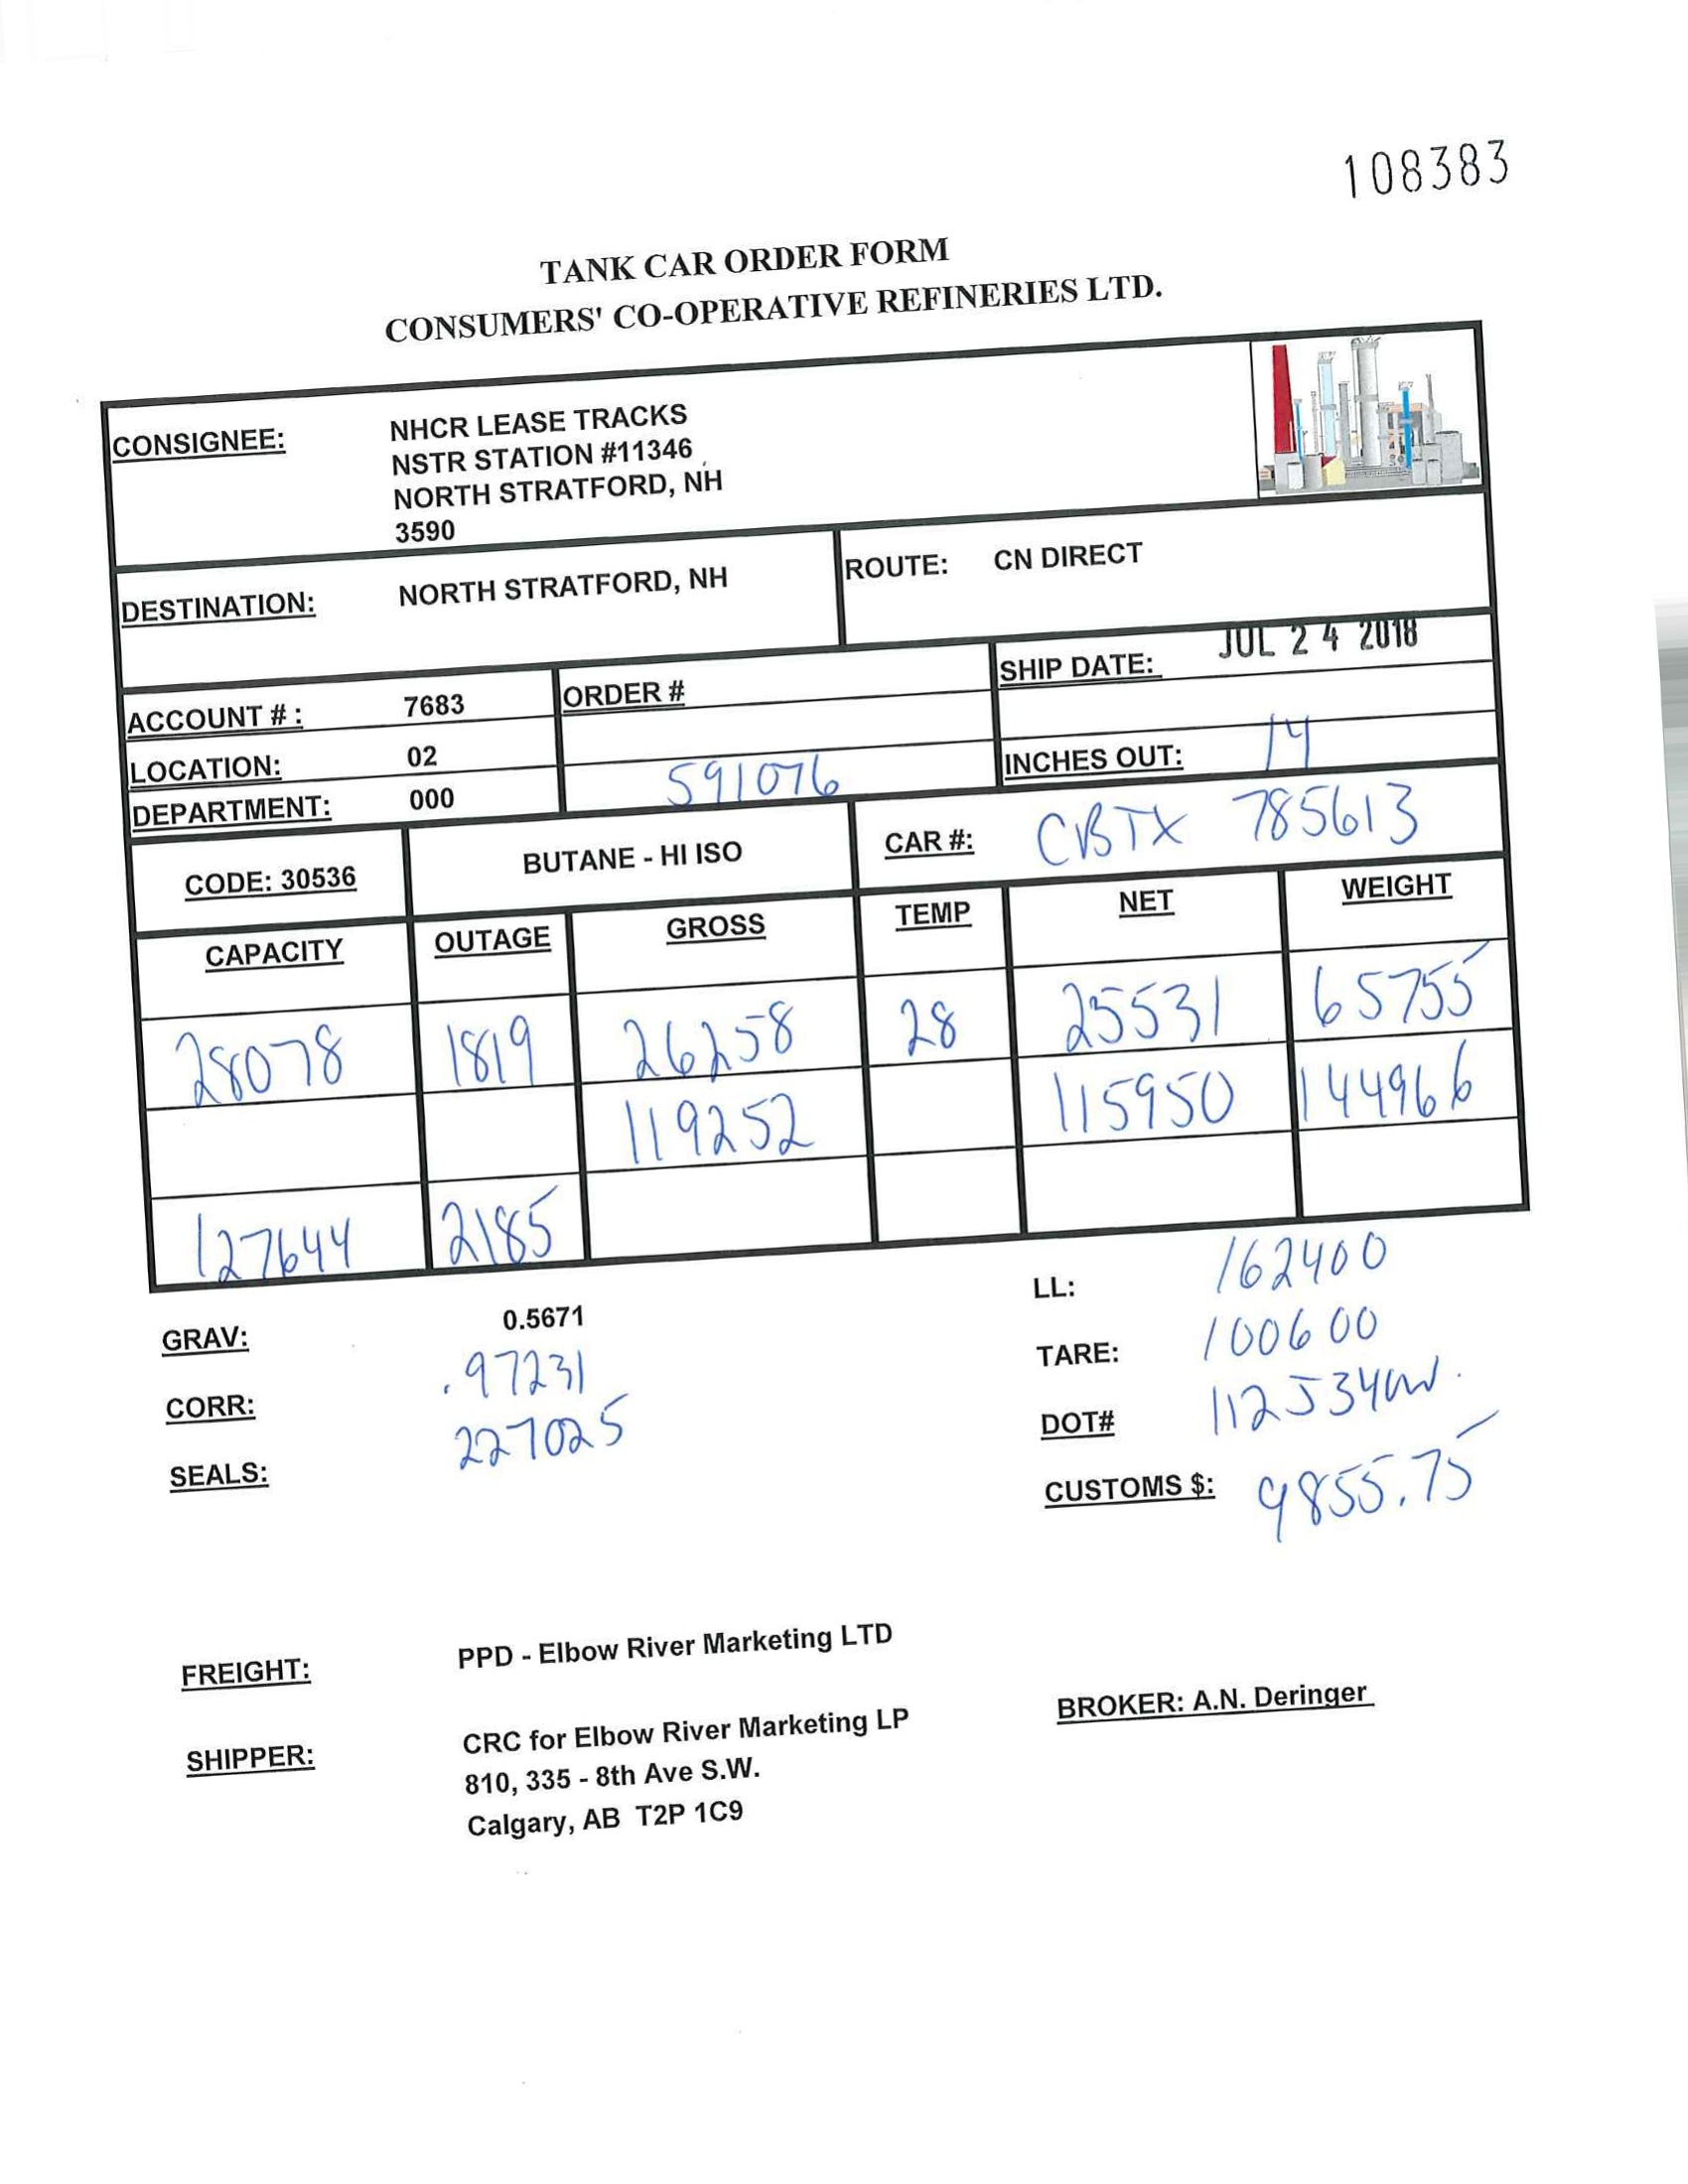 108383
TANK CAR ORDER FORM
CONSUMERS' CO-OPERATIVE REFINERIES LTD.
CONSIGNEE: NHCR LEASE TRACKS
NSTR STATION #11346
NORTH STRATFORD, NH
3590
DESTINATION: NORTH STRATFORD, NH ROUTE: CN DIRECT
ACCOUNT # : 7683 ORDER # SHIP DATE: JUL 24 2018
LOCATION: 02
DEPARTMENT: 000 591076 INCHES OUT: 14
CODE: 30536 BUTANE - HI ISO CAR #: CBTX 785613
CAPACITY OUTAGE GROSS TEMP NET WEIGHT
28078 1819 26258 28 25531 65755
119252 115950 144966
127644 2185
GRAV: 0.5671 LL: 162400
CORR: .97231 TARE: 100600
SEALS: 227025 DOT# 112J340W.
CUSTOMS $: 9855.75
FREIGHT: PPD - Elbow River Marketing LTD
SHIPPER: CRC for Elbow River Marketing LP BROKER: A.N. Deringer
810, 335 - 8th Ave S.W.
Calgary, AB T2P 1C9